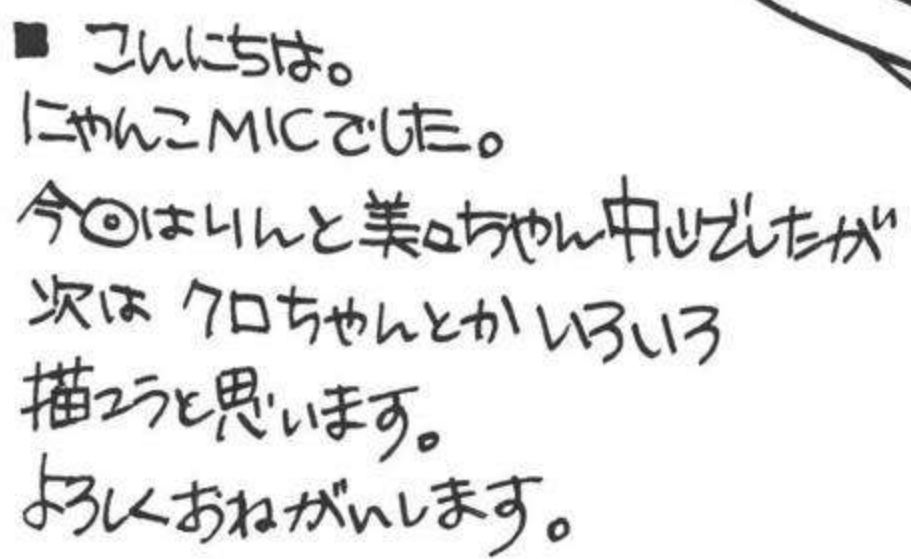 ■ こんにちは。
にゃんこMICでした。
今回はりんと美口ちゃん中心でしたが
次は クロちゃんとか いろいろ
描こうと思います。
よろしくおねがいします。